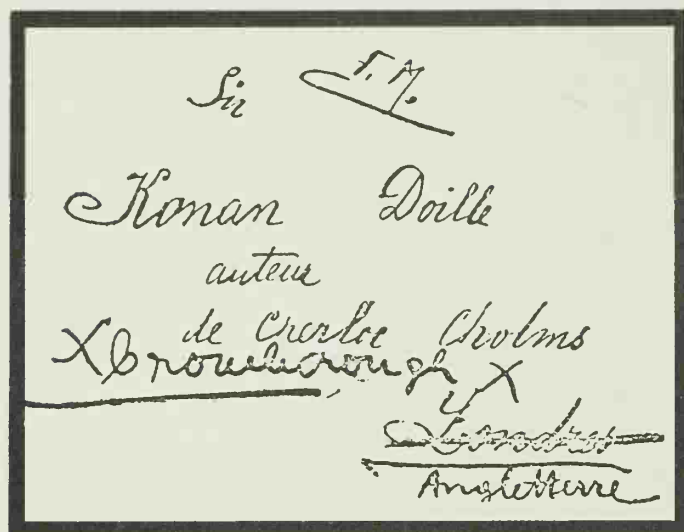 Sir F. M.
Konan Doille
auteur
de Cherloc Cholms
X Crowborough X
Londres
Angletterre